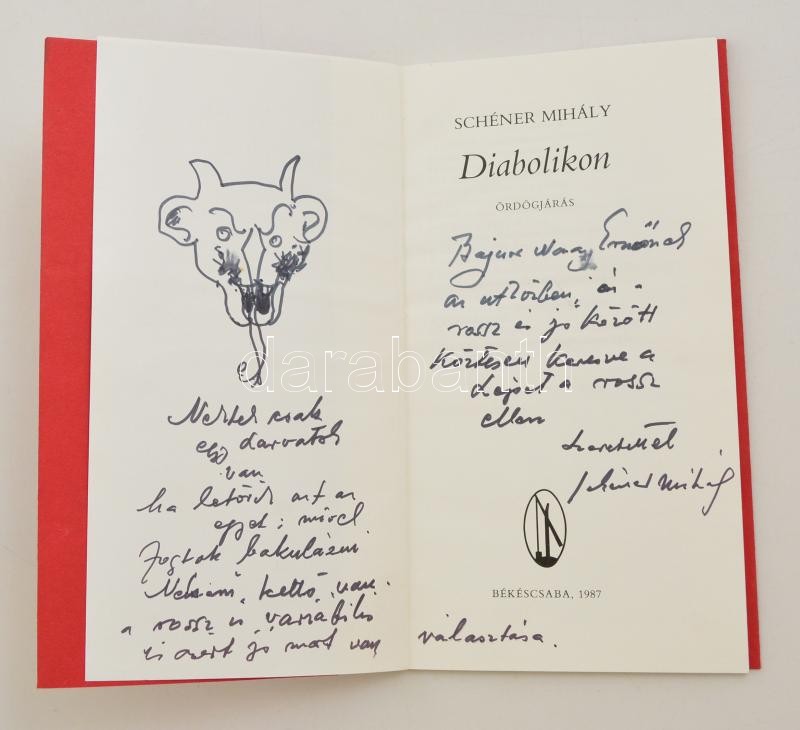 Nektek csak
egy
van
ha letörik azt az
egyet; mivel
fogtok bakulázni
Nekem, kettő, van.
a rossz is variábilis
és ezért jó mert van
választása.
SCHÉNER MIHÁLY
Diabolikon
ÖRDÖGJÁRÁS
Nagy Ernőnek
az és a
rossz és jó között
keresve a
a rossz
ellen
szeretettel
Schéner Mihály
BÉKÉSCSABA, 1987
darabanth